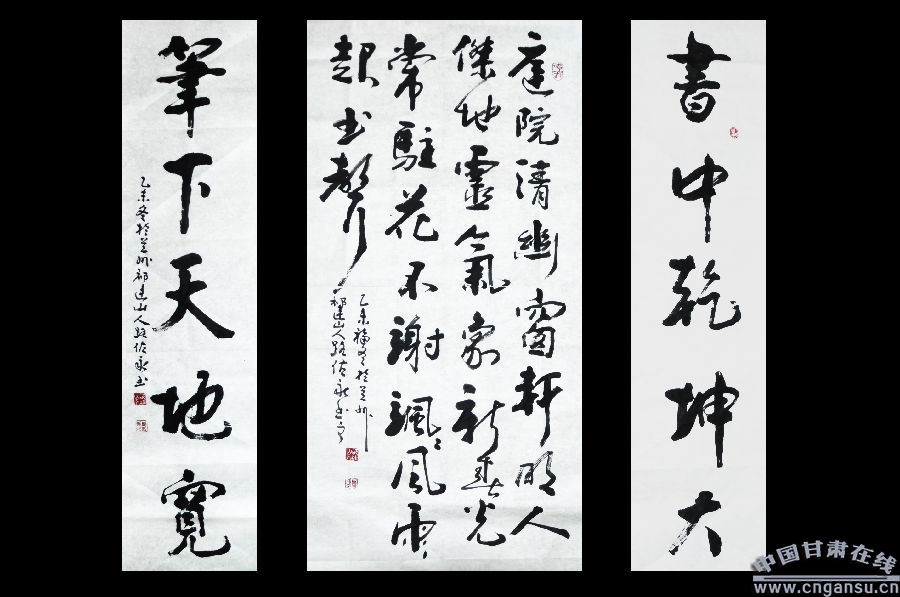 書中乾坤大
庭院清幽窗軒明人
傑地靈氣象新春光
常駐花不謝颯〻風雨
起书聲
乙未冬於兰州
祁连山人路佐永书
筆下天地寬
乙未冬於兰州祁连山人路佐永书
中国甘肃在线
www.cngansu.cn